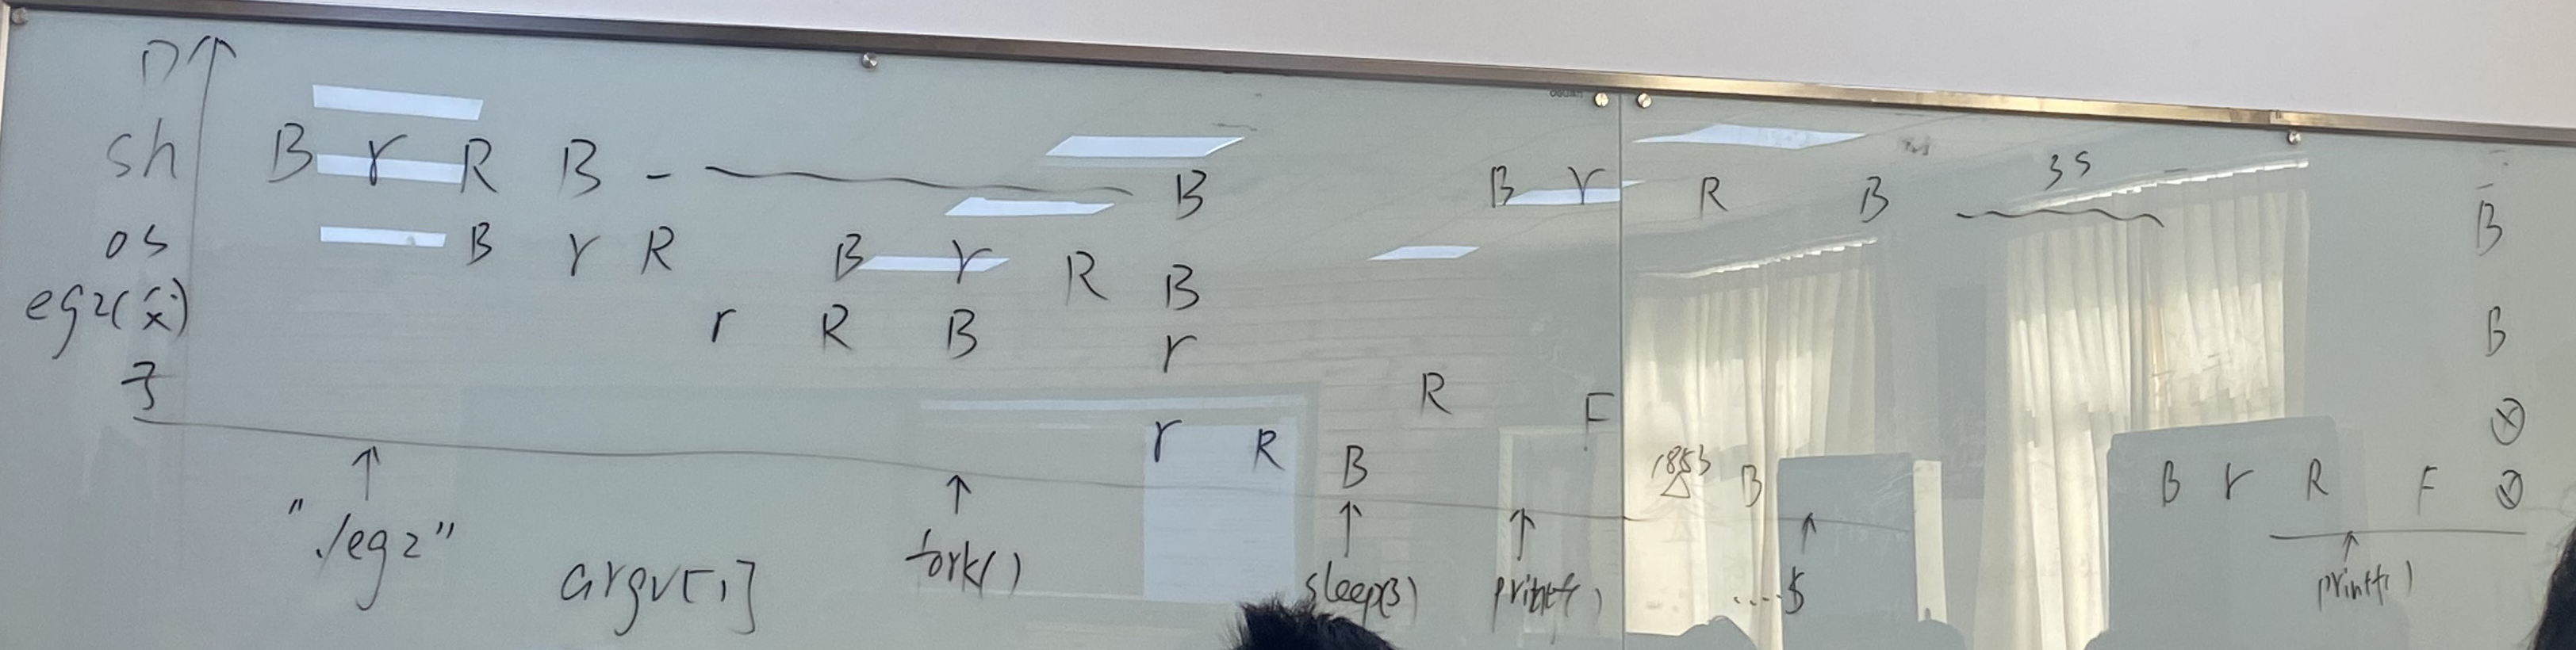 sh B r R B B B r R B 3S B
os B r R B r R B B
eg2(父) r R B r R F
子 r R B B r R F
"./eg2" argv[1] fork() sleep(3) printf() ....$ printf()